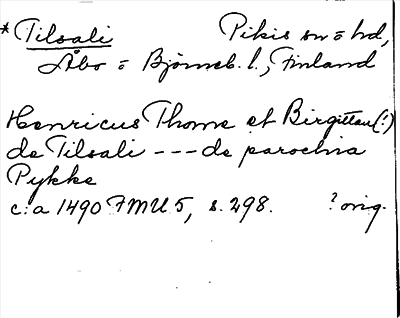 *Tilsali Pikis sn o hd,
Åbo o Björneb. l., Finland
Henricus Thome et Birgittau(!)
de Tilsali --- de parochia
Pykke
c:a 1490 FMU 5, s. 298. ? orig.